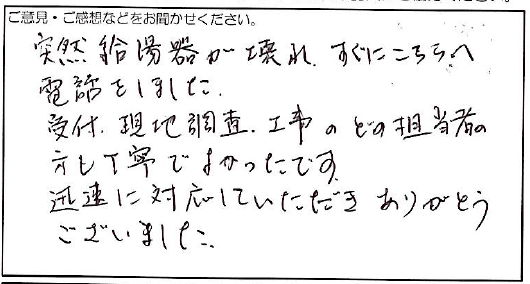 ご意見・ご感想などをお聞かせください。
突然給湯器が壊れ、すぐにこちらへ
電話をしました。
受付、現地調査、工事のどの担当者の
方も丁寧でよかったです。
迅速に対応していただきありがとう
ございました。